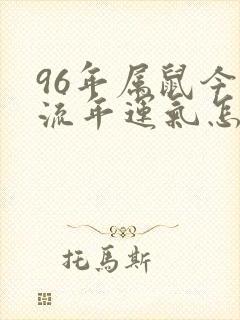 96年属鼠今
流年运氣怎
托馬斯